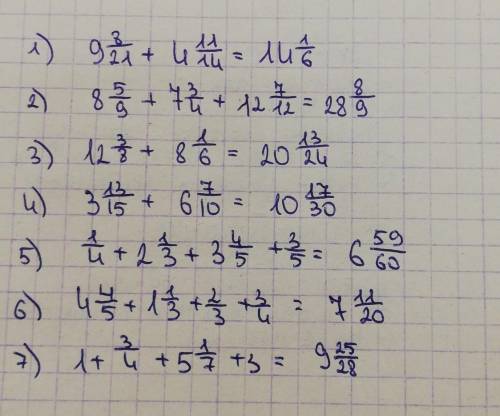 1) 9 8/21 + 4 11/14 = 14 1/6
2) 8 5/9 + 7 3/4 + 12 7/12 = 28 8/9
3) 12 3/8 + 8 1/6 = 20 13/24
4) 3 13/15 + 6 7/10 = 10 17/30
5) 1/4 + 2 1/3 + 3 4/5 + 3/5 = 6 59/60
6) 4 4/5 + 1 1/3 + 2/3 + 3/4 = 7 11/20
7) 1 + 3/4 + 5 1/7 + 3 = 9 25/28